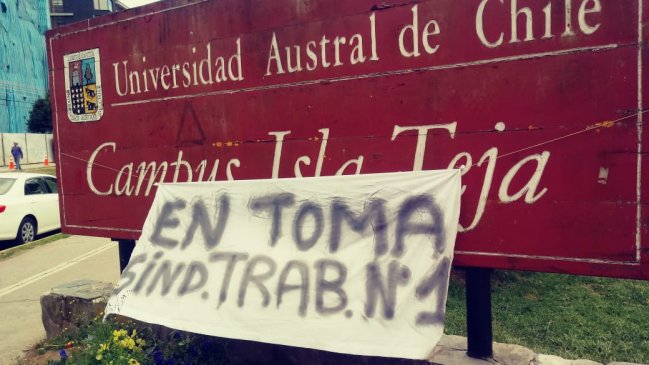 Universidad Austral de Chile
Campus Isla Teja
EN TOMA
SIND. TRAB. N°1